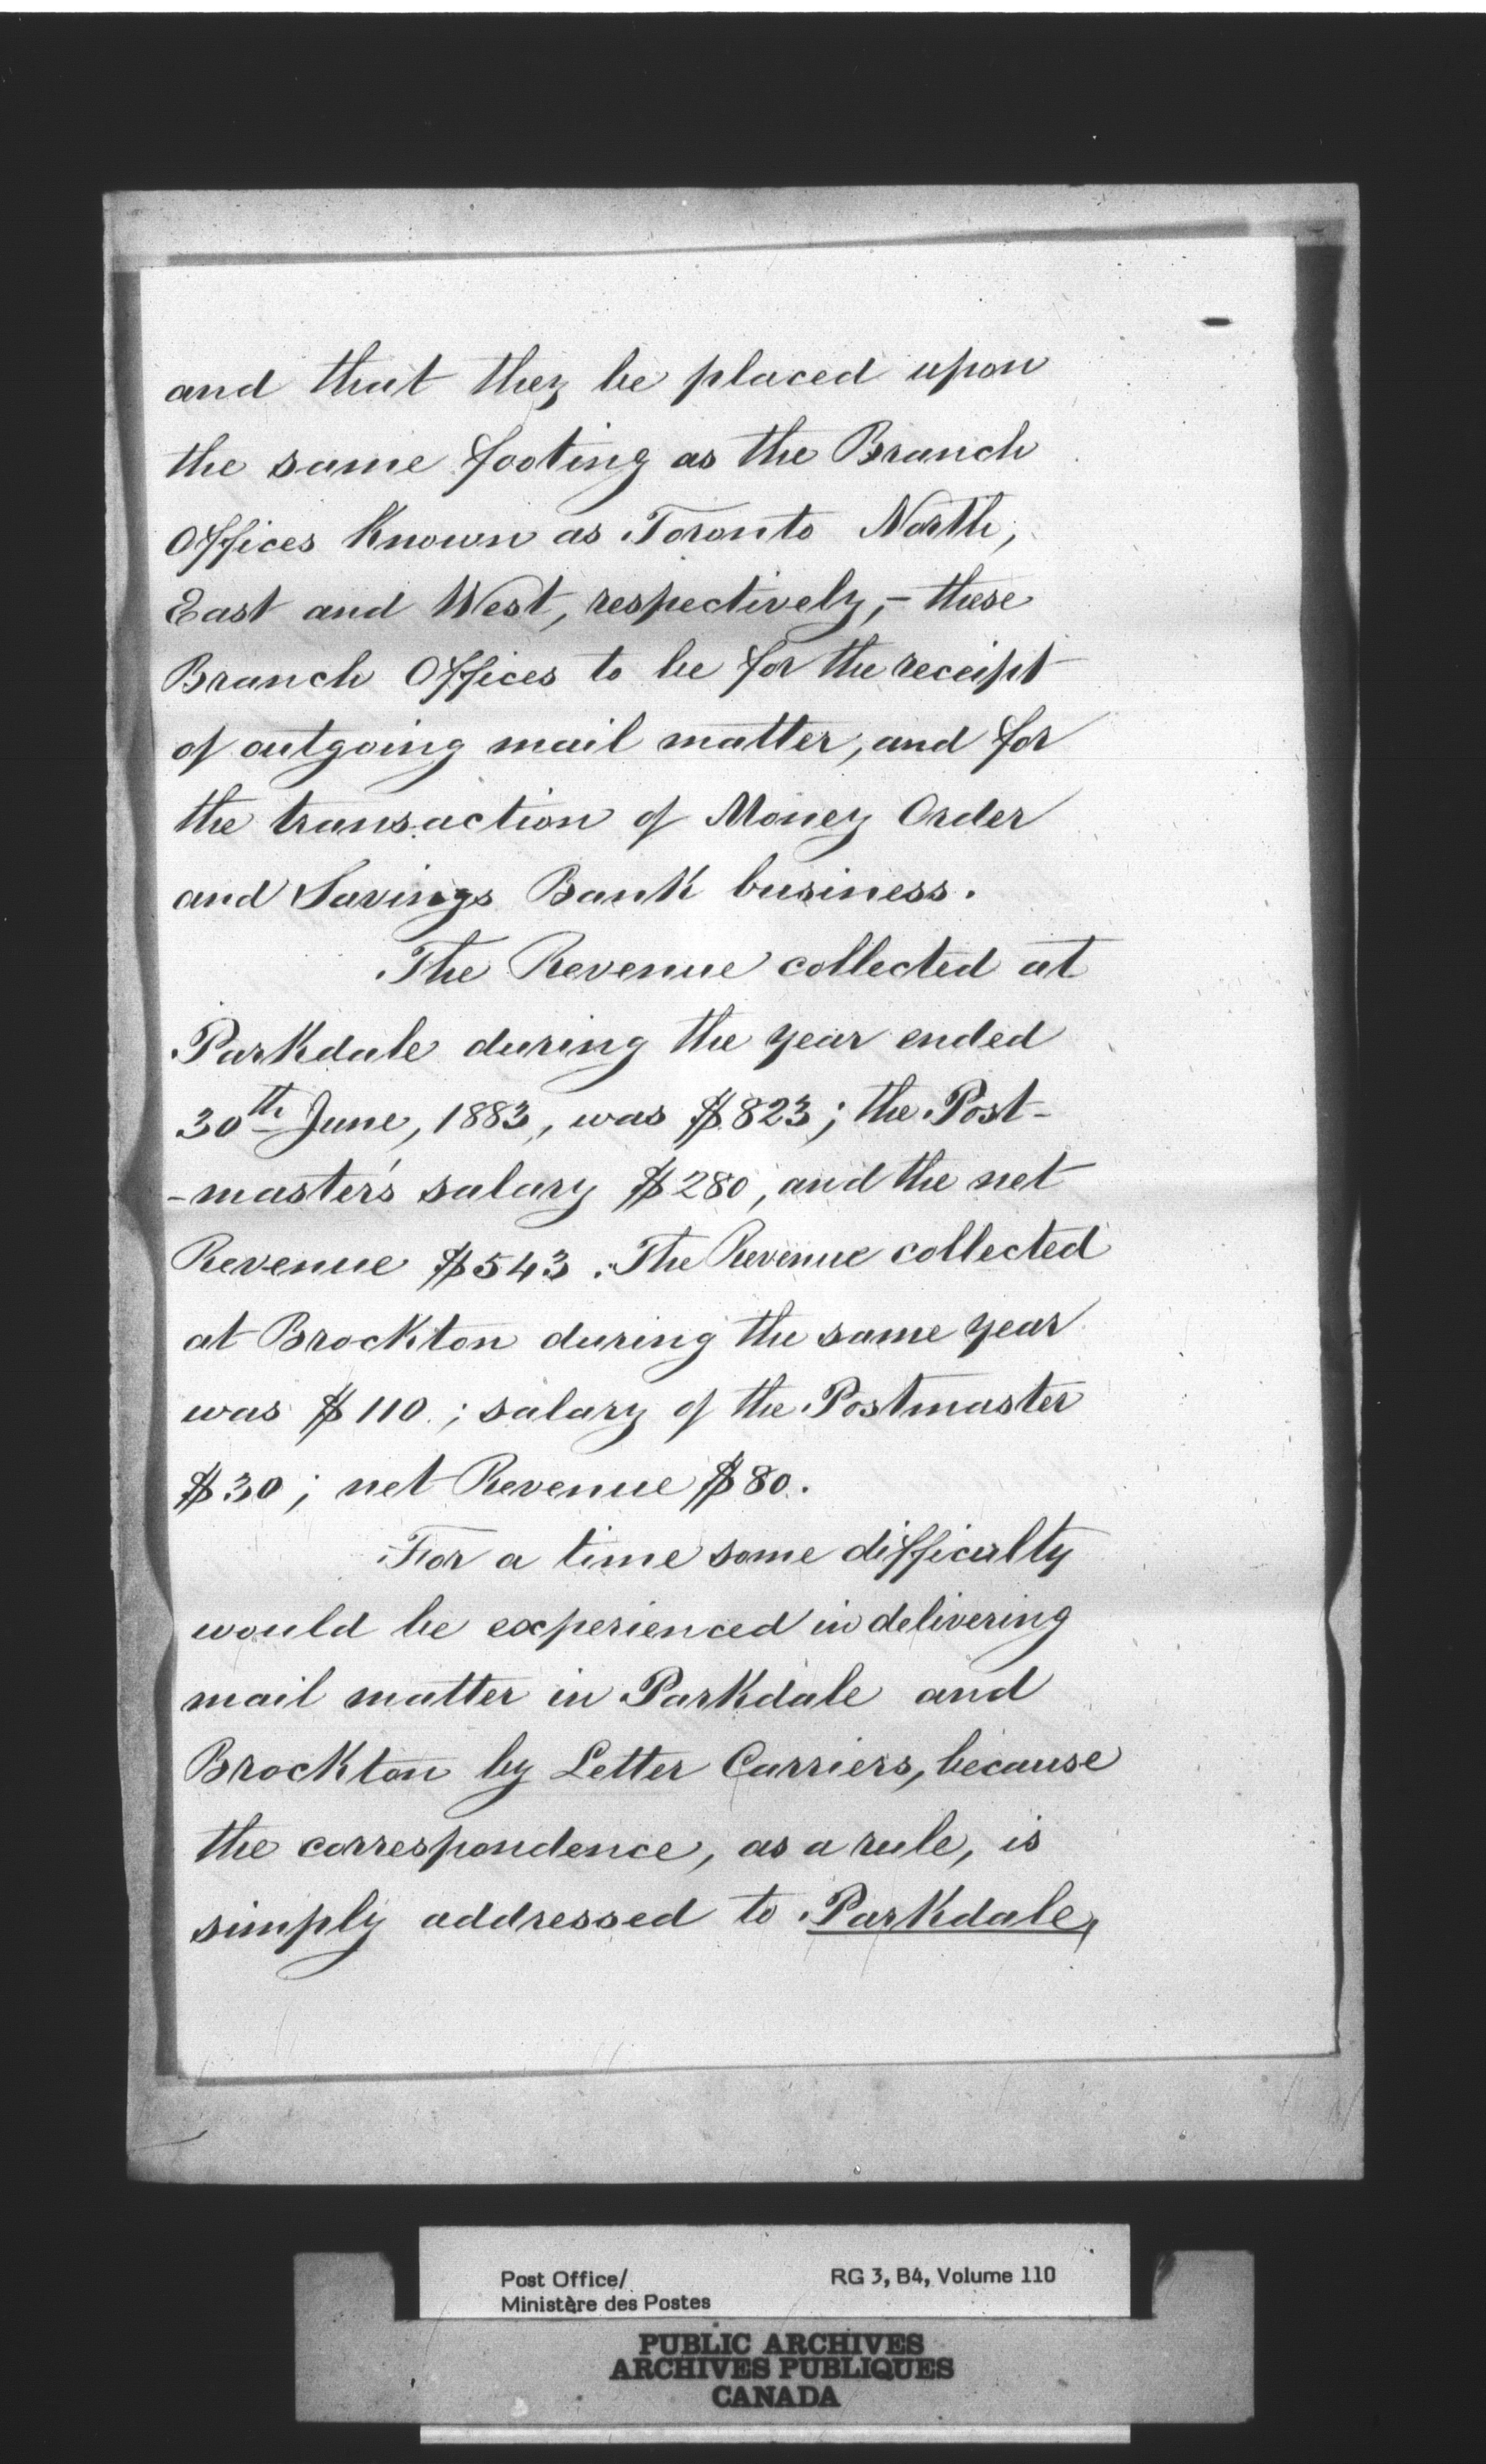 and that they be placed upon
the same footing as the Branch
Offices known as Toronto North,
East and West, respectively, - these
Branch Offices to be for the receipt
of outgoing mail matter, and for
the transaction of Money Order
and Savings Bank business.
The Revenue collected at
Parkdale during the year ended
30th June, 1883, was $823; the Post-
-master's salary $280, and the net
Revenue $543. The Revenue collected
at Brockton during the same year
was $110.; salary of the Postmaster
$30; net Revenue $80.
For a time some difficulty
would be experienced in delivering
mail matter in Parkdale and
Brockton by Letter Carriers, because
the correspondence, as a rule, is
simply addressed to Parkdale,
Post Office/ RG 3, B4, Volume 110
Ministère des Postes
PUBLIC ARCHIVES
ARCHIVES PUBLIQUES
CANADA